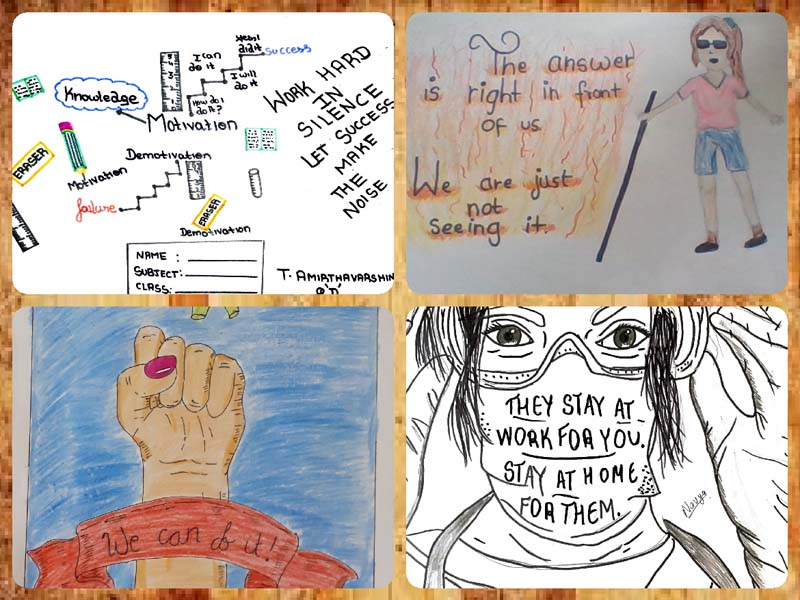 Knowledge
I can
do it
Yes I
did it
success
I will
do it
How do I
do it?
Motivation
WORK HARD
IN
SILENCE
LET SUCCESS
MAKE
THE
NOISE
ERASER
Motivation
Demotivation
failure
ERASER
Demotivation
NAME :
SUBJECT:
CLASS:
T. AMIRTHAVARSHIN
The answer
is right in front
of us.
We are just
not
seeing it.
We can do it!
THEY STAY AT
WORK FOR YOU.
STAY AT HOME
FOR THEM.
Navya